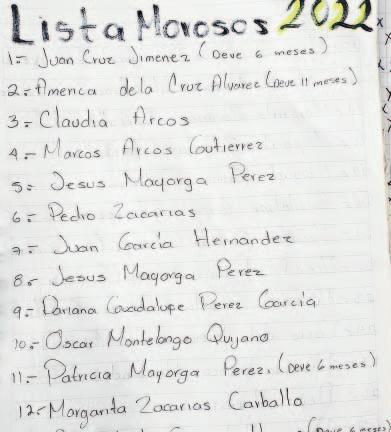 Lista Morosos 2022
1= Juan Cruz Jimenez (Deve 6 meses)
2= America dela Cruz Alvarez (Deve 11 meses)
3= Claudia Arcos
4= Marcos Arcos Gutierrez
5= Jesus Mayorga Perez
6= Pedro Zacarias
7= Juan Garcia Hernandez
8= Jesus Mayorga Perez
9= Dariana Guadalupe Perez Garcia
10= Oscar Montelongo Qujano
11= Patricia Mayorga Perez. (Deve 6 meses)
12= Margarita Zacarias Carballo
(Deve 6 meses)